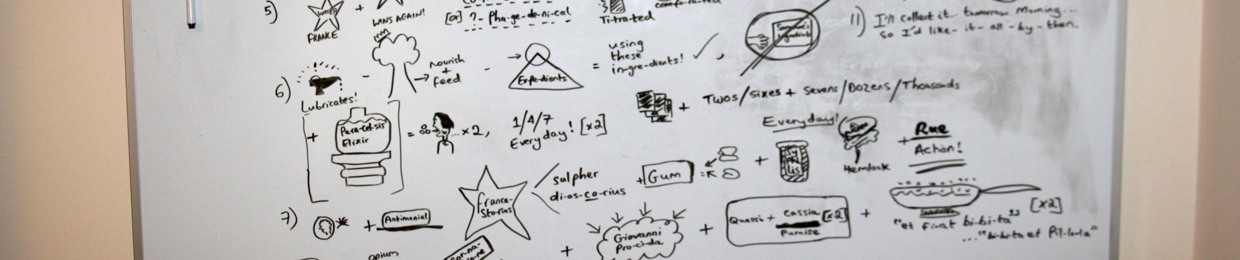 5)
FRANCE
+
WANS AGAIN!
[or] ?- Pha-ge-de-ni-cal
Ti-tra-ted
11) I'll collect it tomorrow morning...
So I'd like- it- all - by - then.
6)
Lubricates!
-
→ nourish
+
feed
-
Expedients
=
using
these
in-gre-dients! ✓,
+
Para-cel-sis'
Elixir
=
...x2,
1/4/7
Everyday! [x2]
+ Twos/Sixes + Sevens/Dozens/Thousands
Everyday!
7)
+ Antimonial
Franca-
Storius
sulpher
di-as-co-rius
+ Gum
=
+
Hemlock
+ Rue
Action!
opium
+
Giovanni
Pro-ci-da
+
Quassi + Cassia [x2]
Pumise
+
[x2]
"et fivat bi-bi-ta"
..."bi-bi-ta et Pil-lu-la"